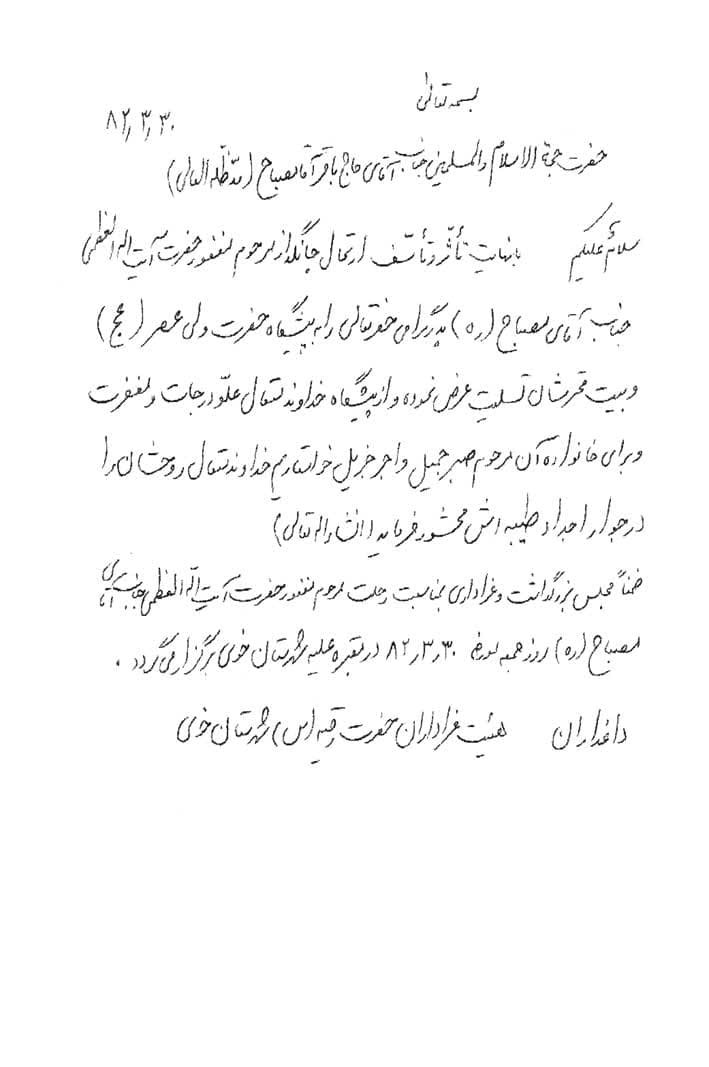 بسمه تعالی
۸۲٫۳٫۳۰
حضرت حجة الاسلام والمسلمین جناب آقای حاج باقر آقا مصباح (مدّظلّه العالی)
سلامٌ علیکم با نهایت تأثّر و تأسّف ارتحال جانگداز مرحوم مغفور حضرت آیت اله العظمی
جناب آقای مصباح (ره) پدر گرامی حضرتعالی را به پیشگاه حضرت ولی عصر (عج)
و بیت محترمشان تسلیت عرض نموده و از پیشگاه خداوند متعال علّو درجات و مغفرت
و برای خانواده آن مرحوم صبر جمیل و اجر جزیل خواستاریم خداوند متعال روحشان را
در جوار اجداد طیبه اش محشور فرماید (انشاءاله تعالی)
ضمناً مجلس بزرگداشت و عزاداری بمناسبت رحلت مرحوم مغفور حضرت آیت اله العظمی جناب آقای
مصباح (ره) روز جمعه مورخه ۸۲٫۳٫۳۰ در مقبره علیه شهرستان خوی برگزار می گردد .
داغداران هیئت عزاداران حضرت رقیه (س) شهرستان خوی